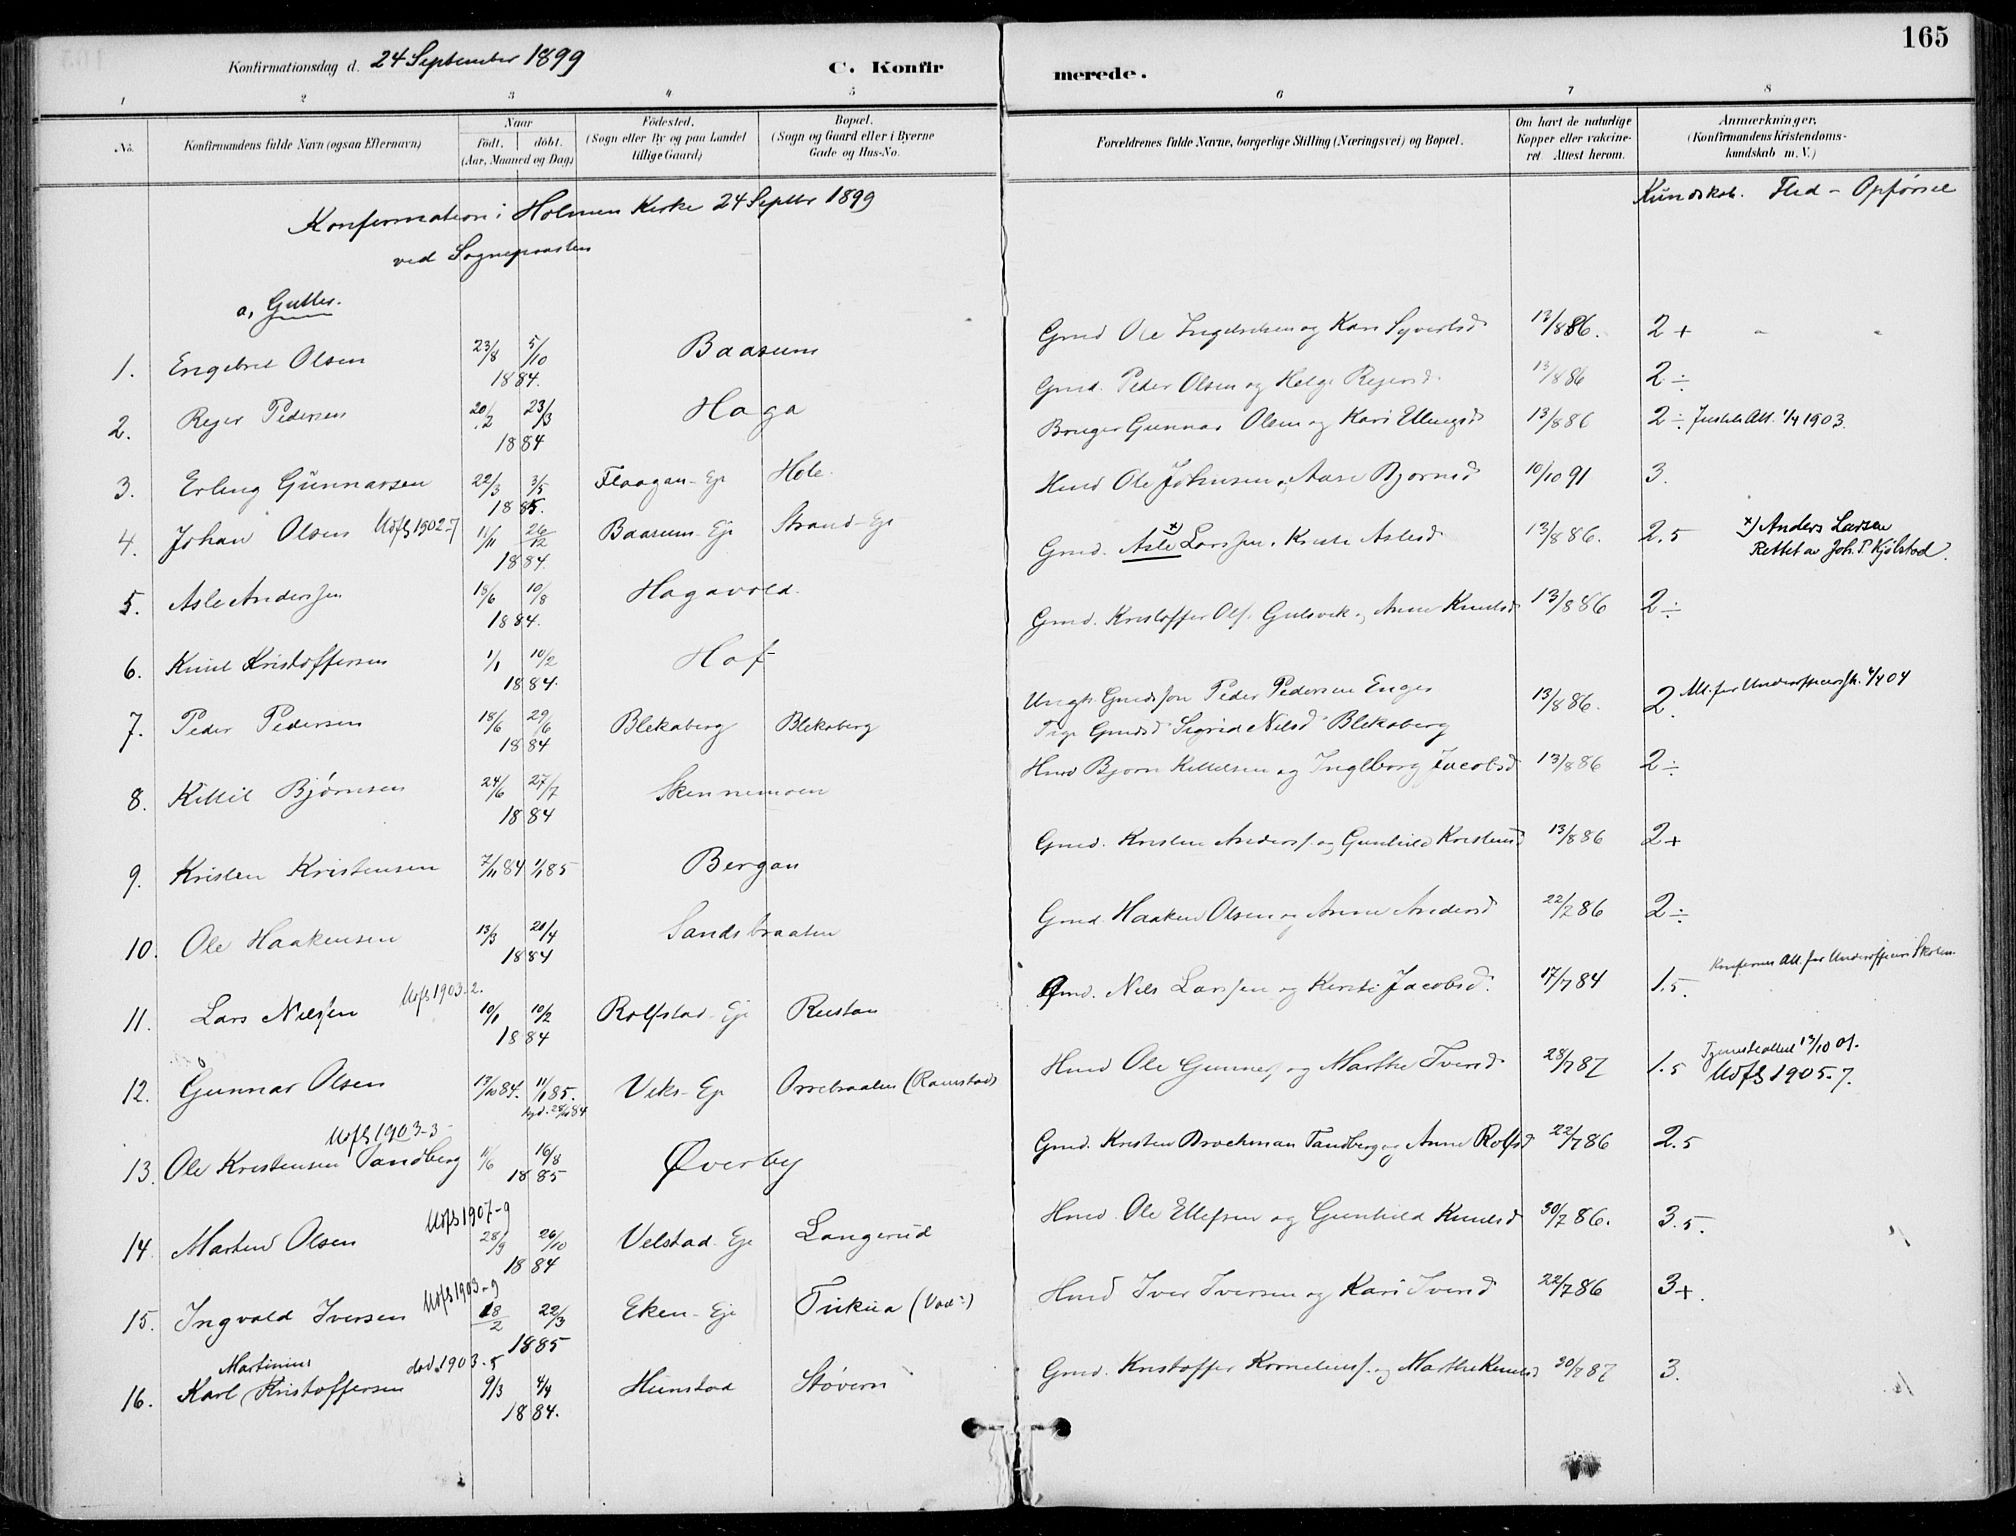 165
Konfirmationsdag d. 24 September 1899
C. Konfirmerede.
1 2 3 4 5 6 7 8
No. Konfirmandens fulde Navn (ogsaa Efternavn) Naar født. døbt. (Aar, Maaned og Dag) Fødested. (Sogn eller By og paa Landet tillige Gaard) Bopæl. (Sogn og Gaard eller i Byerne Gade og Hus-No. Forældrenes fulde Navne, borgerlige Stilling (Næringsvei) og Bopæl. Om havt de naturlige Kopper eller vakcineret Attest herom. Anmærkninger. (Konfirmandens Kristendomskundskab m. V.)
Kundskab. Flid - Opførsel
Konfirmation i Holmen Kirke 24 Septbr 1899
ved Sognepræsten
a, Gutter.
1. Engebret Olsen 23/8 5/10 1884. Baasum Gmd Ole Ingebretsen og Kari Syvertsd 13/8 86. 2+ " "
2. Reier Pedersen 20/2 23/3 1884 Haga Gmd. Peder Olsen og Helge Reiersd. 13/8 86 2÷
3. Erling Gunnarsen 22/3 3/5 1885. Flaagan-Ej Hole Bruger Gunnar Olsen og Kari Ellingsd 13/8 86 2÷ 1/4 1903.
4. Johan Olsen Udfl 1902-7 11/11 26/12 1884. Baasum-Eje Strand-Ej Hmd Ole Johnsen og Aase Bjørnsd 10/10 91 3.
5. Asle Anderssen 18/6 10/8 1884. Hagavold. Gmd. Asle x) Larssen. Kirsti Aslesd 13/8 86. 2.5 x) Anders Larsen
Rettet av Joh. P Kjølstad.
6. Knut Kristoffersen 1/1 10/2 1884. Hof Gmd. Kristoffer Ols. Gulsvik og Anne Knutsd 13/8 86 2÷
7. Peder Pedersen 18/6 29/6 1884 Blekaberg Blekaberg Ungk. Gmdssøn Peder Pedersen Enger 13/8 86. 2. Att. for Underofficerssk. 4/4 04
Pige Gmdsd Sigrid Nilsd Blekaberg
8. Kittil Bjørnsen 24/6 27/7 1884 Skinnemoen Hmd Bjørn Kittelsen og Ingeborg Jacobsd 13/8 86 2÷
9. Kristen Kristensen 7/11 84 1/1 85 Bergan Gmd. Kristen Anders. og Gunhild Kristensd 13/8 86 2+
10. Ole Haakensen 13/3 20/4 1884 Sandsbraaten Gmd. Haaken Olsen og Anne Andersd 22/7 86 2÷
11. Lars Nilssen Udfl 1903-2. 10/1 10/2 1884 Rolfstad-Eje Rustan Gmd. Nils Larssen og Kirsti Jacobsd. 17/7 84 1.5. Konfirmas Att. for Underofficers Skolen.
12. Gunnar Olsen 13/10 84. 11/1 85. Viks-Ej Orrebraaten (Ramstad) Hmd Ole Gunners. og Marthe Iversd 28/7 87 1.5 13/10 01.
Udfl 1905.7.
13. Ole Kristensen Tandberg Udfl 1903-3 11/6 16/8 1885 Øverby Gmd. Kristen Brochman Tandberg og Anne Rolfsd 22/7 86 2.5
14. Martin Olsen Udfl 1907-9 28/9 26/10 1884 Velstad Eje Langerud Hmd. Ole Ellefsen og Gunhild Knutsd 30/7 86. 3.5.
15. Ingvald Iversen Udfl 1903-9 18/2 22/3 1885 Eken-Eje Tirkua Hmd Iver Iversen og Kari Iversd 22/7 86 3+.
16. Karl Martinius Kristoffersen død 1903-5 9/3 4/4 1884. Hunstad Støvern Gmd. Kristoffer Korneliuss. og Marthe Knutsd 30/7 87 3.